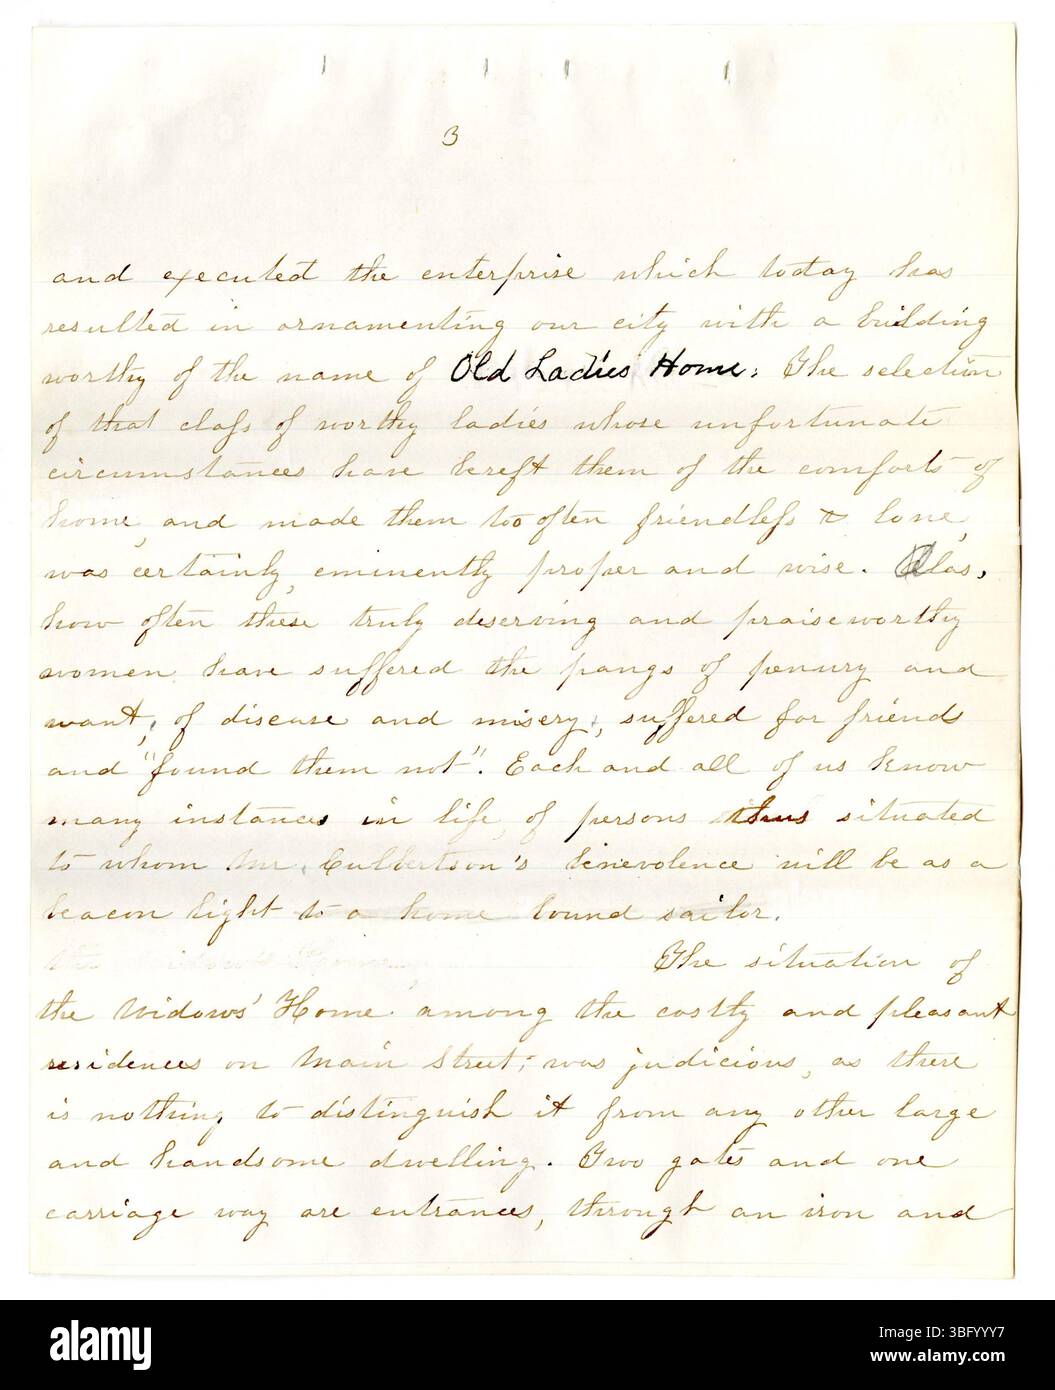 3
and executed the enterprise which today has
resulted in ornamenting our city with a building
worthy of the name of Old Ladies Home. The selection
of that class of worthy ladies whose unfortunate
circumstances have bereft them of the comforts of
home, and made them too often friendless & lone,
was certainly, eminently proper and wise. Alas,
how often these truly deserving and praiseworthy
women have suffered the pangs of penury and
want, of disease and misery, suffered for friends
and "found them not". Each and all of us know
many instances in life, of persons thus situated
to whom Mr. Culbertson's benevolence will be as a
beacon light to a home bound sailor.
The situation of
the Widows' Home among the costly and pleasant
residences on Main Street, was judicious, as there
is nothing to distinguish it from any other large
and handsome dwelling. Two gates and one
carriage way are entrances, through an iron and
alamy
Image ID: 3BFYYY7
www.alamy.com